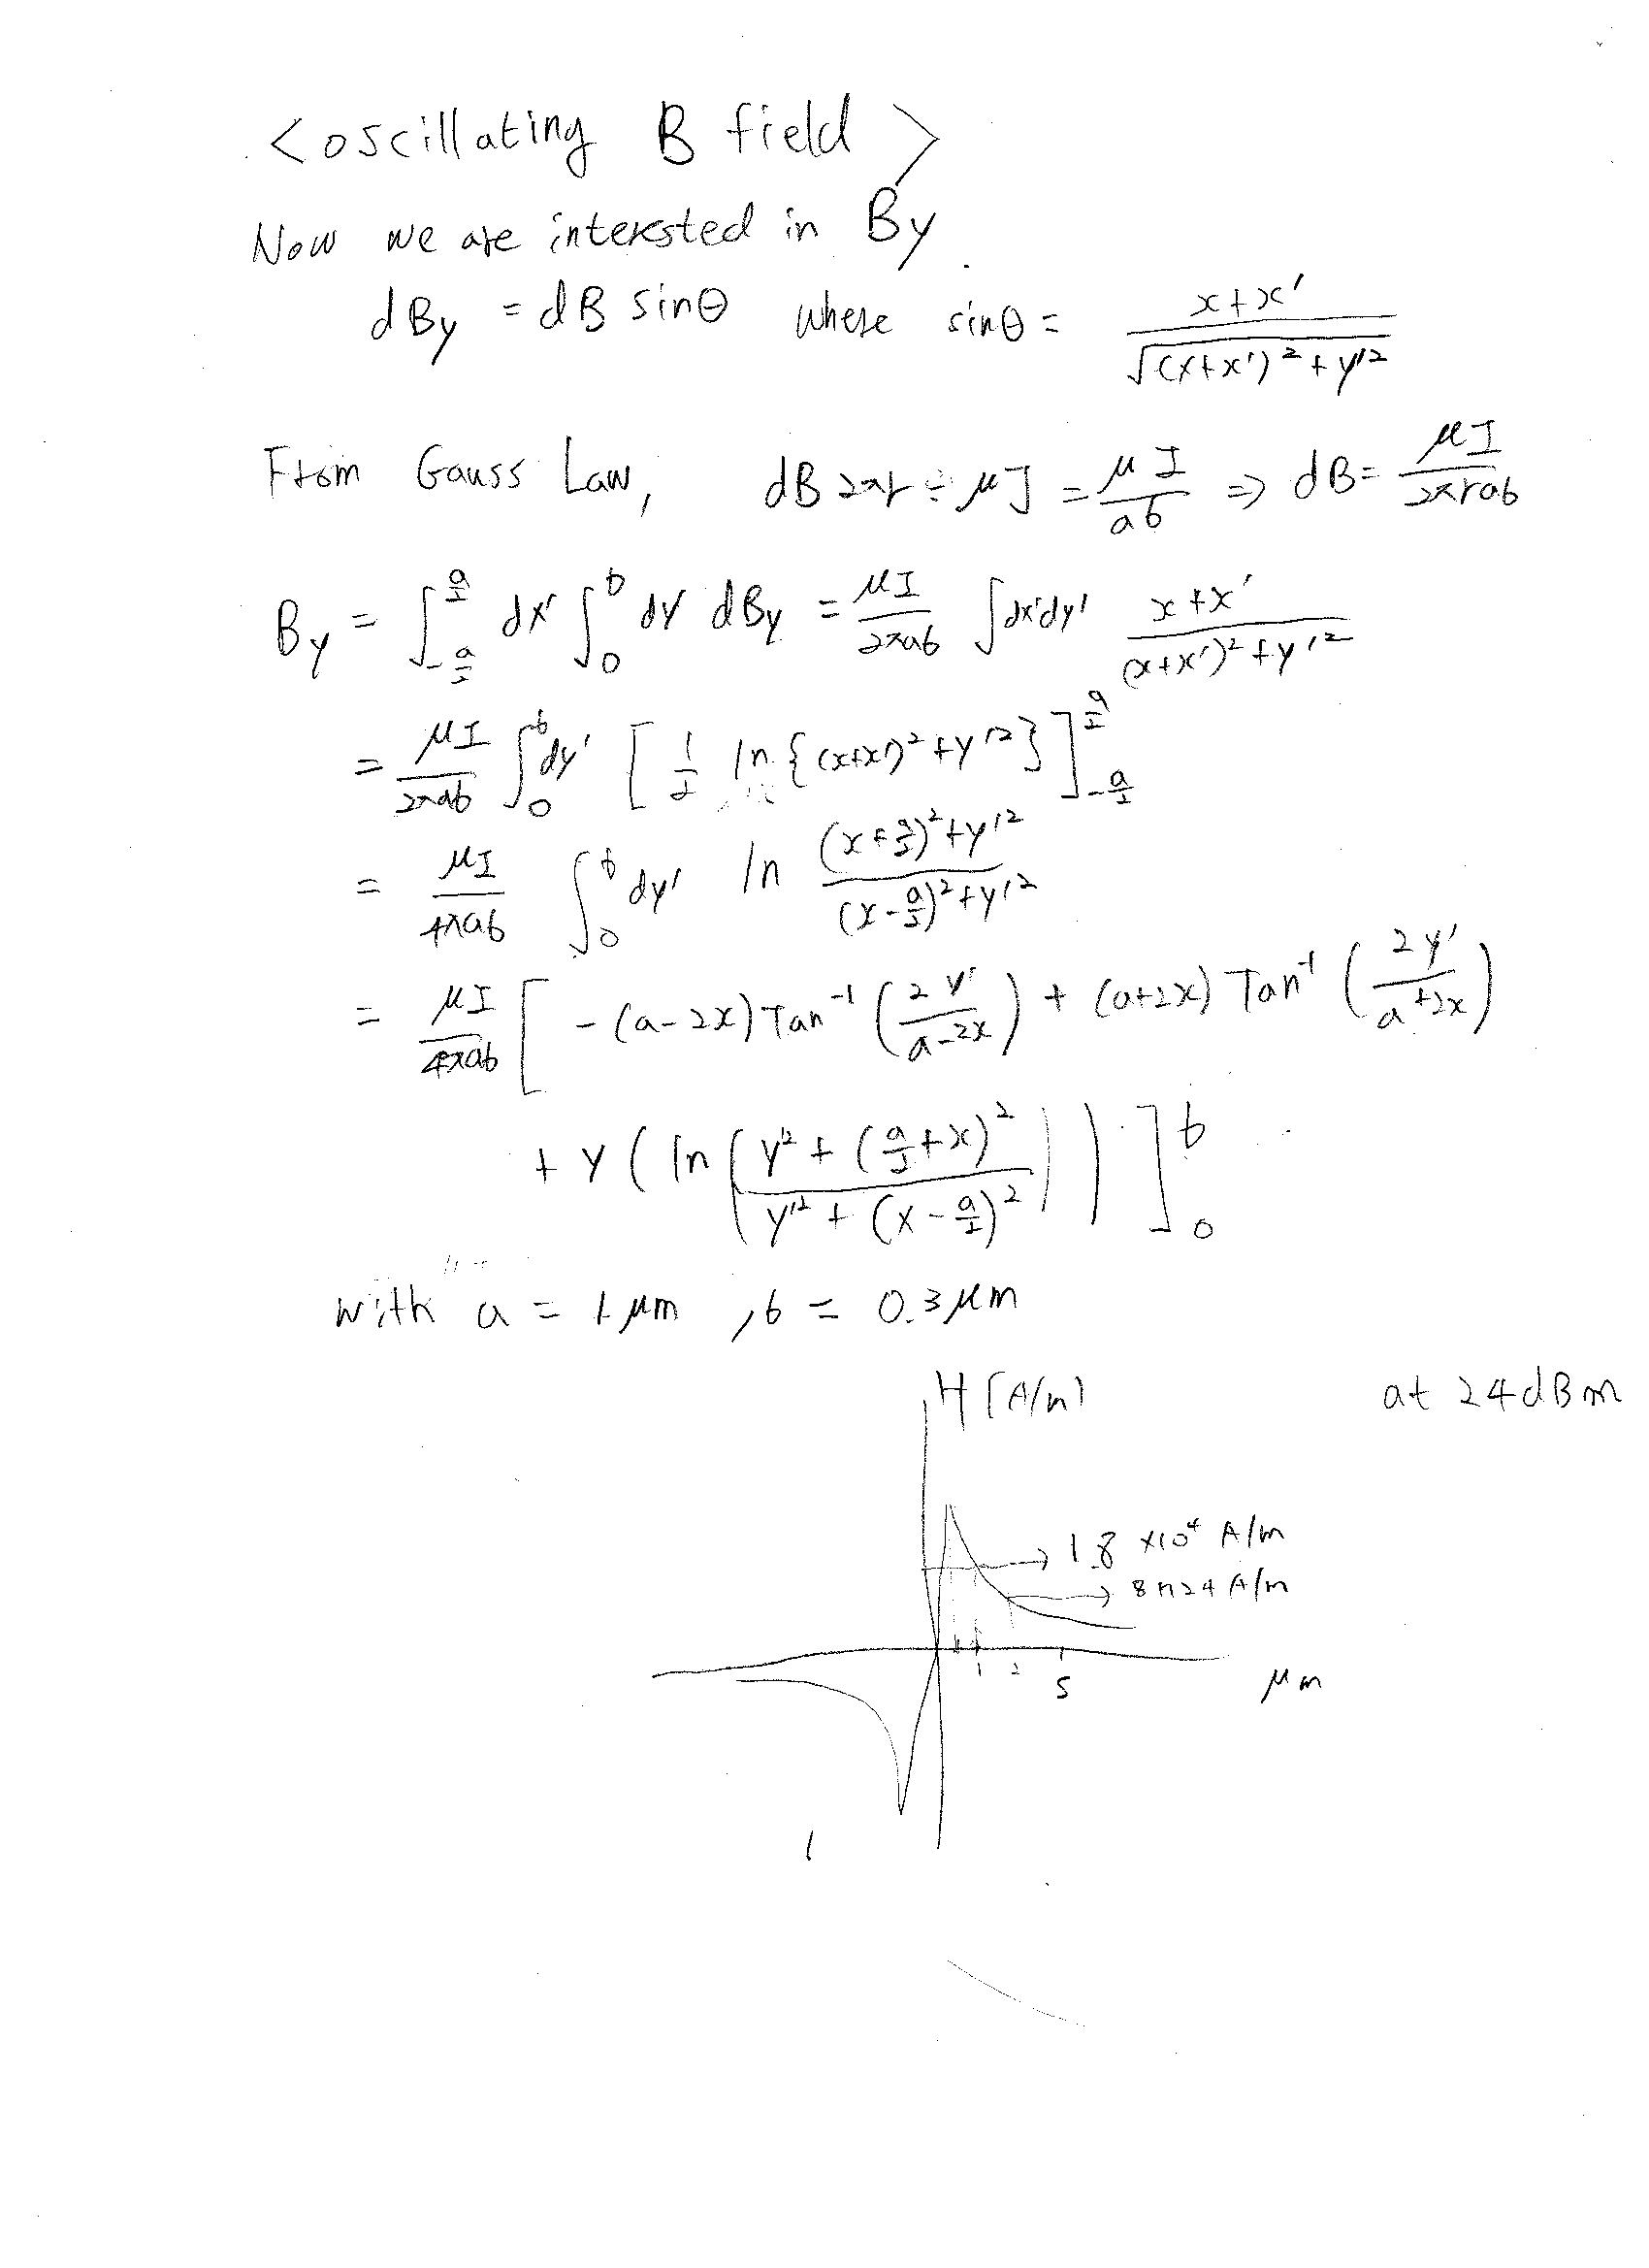 <oscillating B field>
Now we are interested in By.
dBy = dB sinθ where sinθ = (x+x')/√((x+x')²+y'²)
From Gauss Law, dB 2πr = μJ = μI/ab ⇒ dB = μI/2πrab
By = ∫_{-a/2}^{a/2} dx' ∫_0^b dy' dBy = μI/2πab ∫dx'dy' (x+x')/((x+x')²+y'²)
= μI/2πab ∫_0^b dy' [1/2 ln{(x+x')²+y'²}]_{-a/2}^{a/2}
= μI/4πab ∫_0^b dy' ln ((x+a/2)²+y'²)/((x-a/2)²+y'²)
= μI/4πab [ -(a-2x) Tan⁻¹(2y'/(a-2x)) + (a+2x) Tan⁻¹(2y'/(a+2x))
+ y (ln((y'²+(a/2+x)²)/(y'²+(x-a/2)²))) ]_0^b
with a = 1 μm, b = 0.3 μm
H [A/m] at 24dBm
→ 1.8 ×10⁴ A/m
A/m
1 2 5 μm